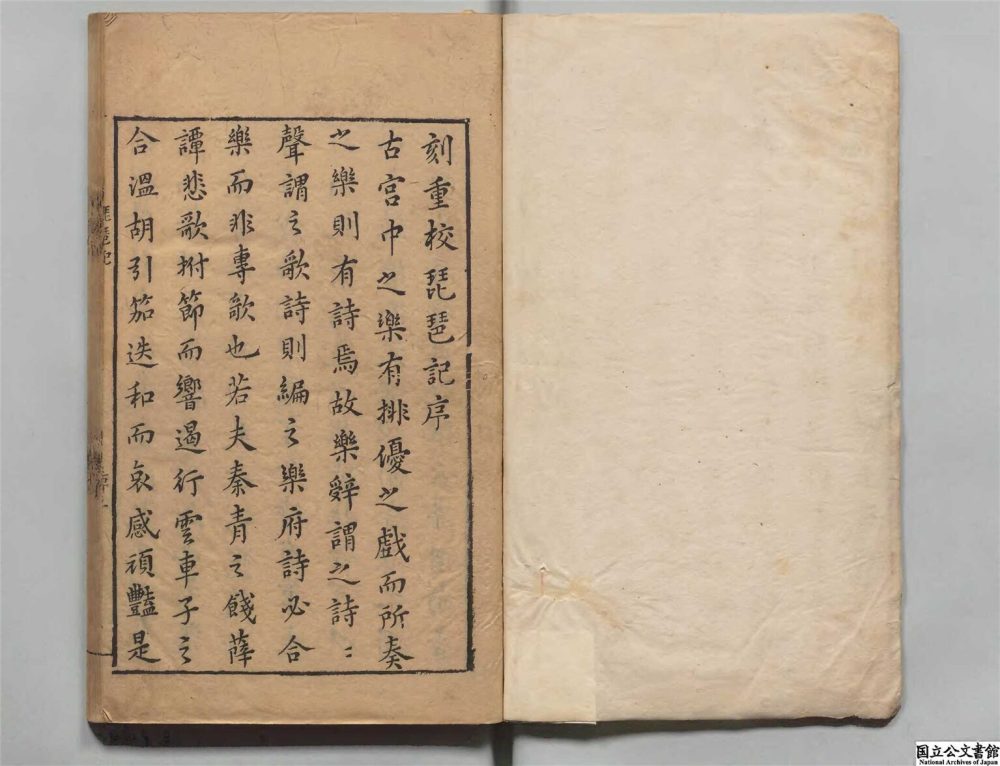 刻重校琵琶記序
古宫中之樂有排優之戲而所奏
之樂則有詩焉故樂辭謂之詩〻
聲謂之歌詩則編之樂府詩必合
樂而非專歌也若夫秦青之餞薛
譚悲歌拊節而響遏行雲車子之
合溫胡引笳迭和而哀感頑豔是
国立公文書館
National Archives of Japan